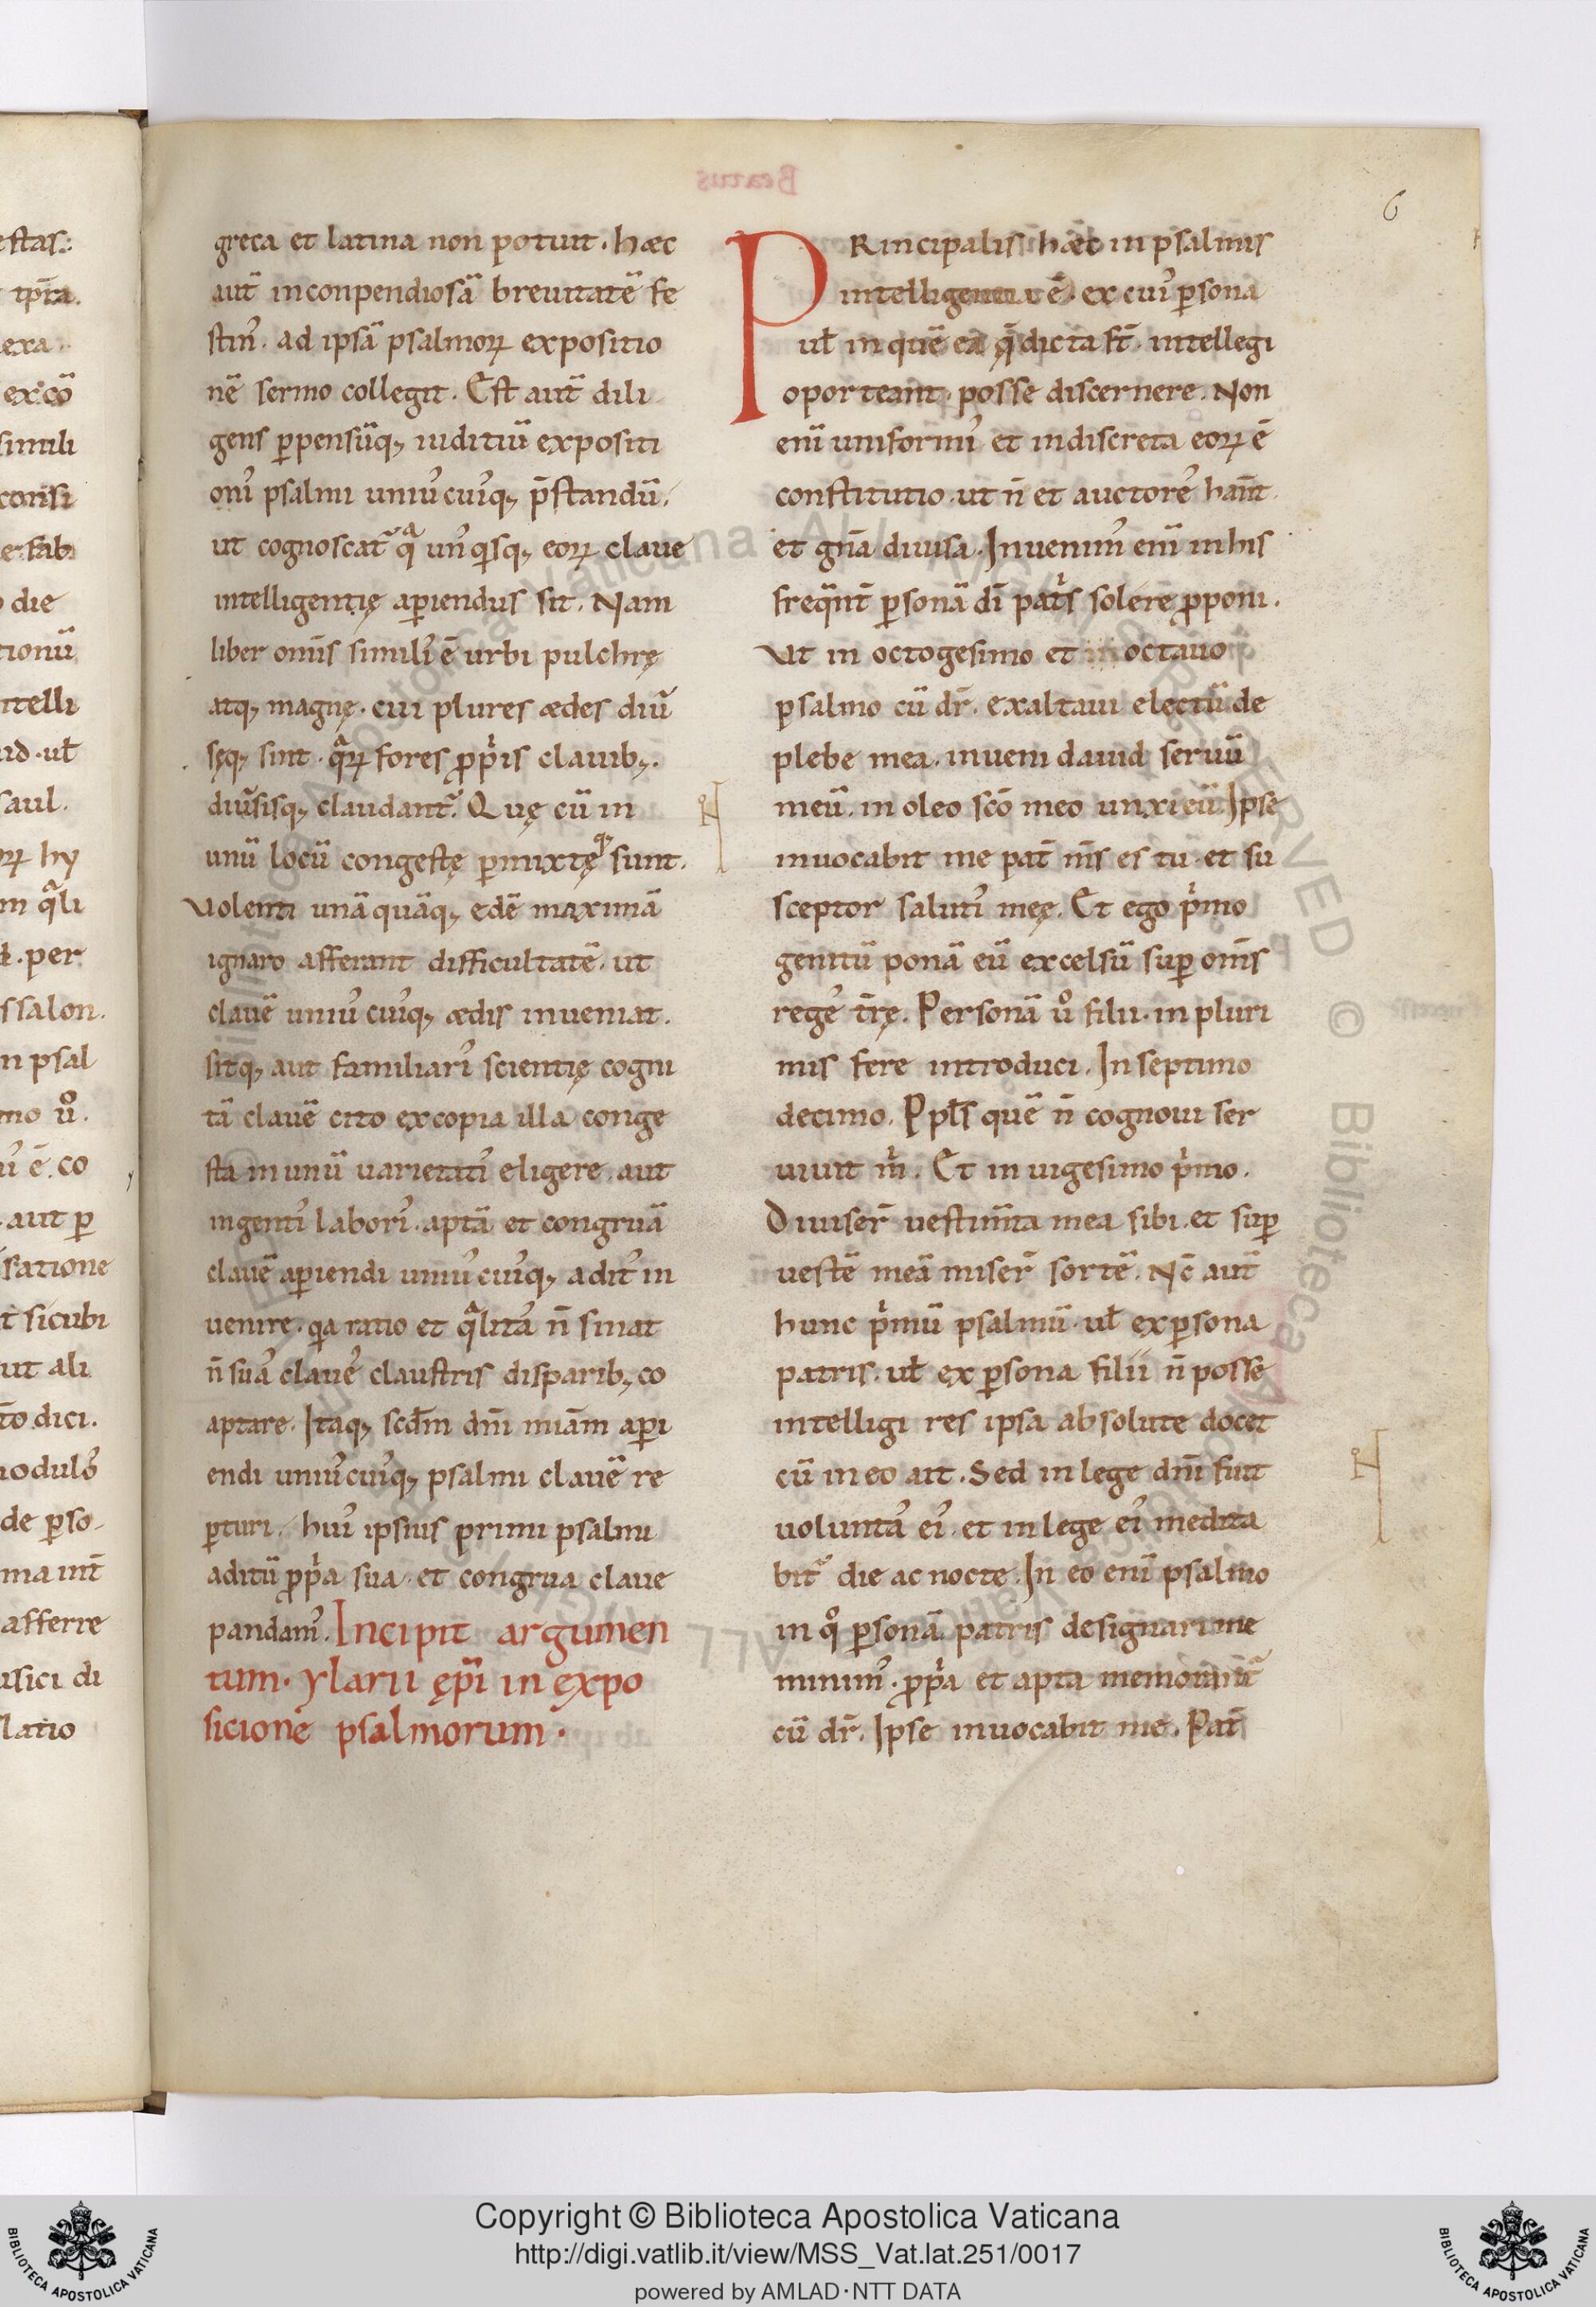 Beatus
6
greca et latina non potuit. hæc
aut̄ inconpendiosā breuitatē fe
stin᷒. ad ipsā psalmoꝝ expositio
nē sermo collegit. Est aut̄ dili
gens ꝑpensūq; iuditiū expositi
oni᷒ psalmi uniu᷒cui᷒q; p̄standū.
ut cognoscat᷑ qͣ un᷒ q̇sq; eoꝝ claue
intelligentię aꝑiendus sit. Nam
liber om̄s simili᷒ ē urbi pulchrę
atq; magnę. cui plures ædes diu᷑
sęq; sint. qͣꝝ fores ꝓpͥis clauib;.
diu᷑sisq; claudant᷑. Quę cū in
unū locū congestę ꝑmixtęq; sunt.
uolenti unā quāq; edē maximā
ignaro afferant difficultatē. ut
clauē uniu᷒ cui᷒q; ædis inueniat.
sitq; aut familiari᷒ scientię cogni
tā clauē cito excopia illa conge
sta in unū uarietati᷒ eligere. aut
ingenti᷒ labori᷒. aptā et congruā
clauē aꝑiendi uniu᷒cui᷒q; adit᷒ in
uenire. qia ratio et qͣlita᷒ n̄ sinat
n̄ sua᷒ claue᷒ claustris disparib; co
aptare. Itaq; scd̄m dn̄i miām aꝑi
endi uniu᷒cui᷒q; psalmi clauē re
ꝑturi. hui᷒ ipsius primi psalmi
aditū ꝓpͥa sua. et congrua claue
pandam᷒. Incipit argumen
tum. ylarii ęp̄i in expo
sicionē psalmorum.
PRincipalis hæc in psalmis
intelligentia ē. ex cui᷒ ꝑsona
uł in quē ea q̄ dicta st̄. intellegi
oporteant. posse discernere. Non
enī uniformi᷒ et indiscreta eoꝝ ē
constitutio. ut n̄ et auctore᷒ hān̄t.
et gn̄a diuisa. Inuenim᷒ enī in his
freq̄nt̄ ꝑsonā dī patͥs solere ꝓponi.
Vt in octogesimo et octauo
psalmo cū dr̄. exaltaui electū de
plebe mea. inueni dauid seruū
meū. in oleo sc̄o meo unxi eū. Ipse
inuocabit me pat̄ m̄s es tu. et su
sceptor saluti᷒ meę. Et ego pͥmo
genitū ponā eū excelsū suꝑ om̄s
rege᷒ tr̄ę. Personā uͦ filii. in pluri
mis fere introduci. In septimo
decimo. Ppl̄s quē n̄ cognoui ser
uiuit mͥ. Et in uigesimo pͥmo.
Diuiser̄ uestim̄ta mea sibi. et suꝑ
uestē meā miser̄ sortē. Nc̄ aut̄
hunc pͥmū psalmū. uł ex ꝑsona
patris. uł ex ꝑsona filii n̄ posse
intelligi res ipsa absolute docet
cū in eo ait. Sed in lege dn̄i fuit
uolunta᷒ ei᷒. et in lege ei᷒ medita
bit᷑ die ac nocte. In eo enī psalmo
in qͦ ꝑsonā patris designari me
minim᷒. ꝓpͥa et apta memorant᷑
cū dr̄. Ipse inuocabit me. Pat̄
Copyright © Biblioteca Apostolica Vaticana
http://digi.vatlib.it/view/MSS_Vat.lat.251/0017
powered by AMLAD·NTT DATA
BIBLIOTECA APOSTOLICA VATICANA
BIBLIOTECA APOSTOLICA VATICANA